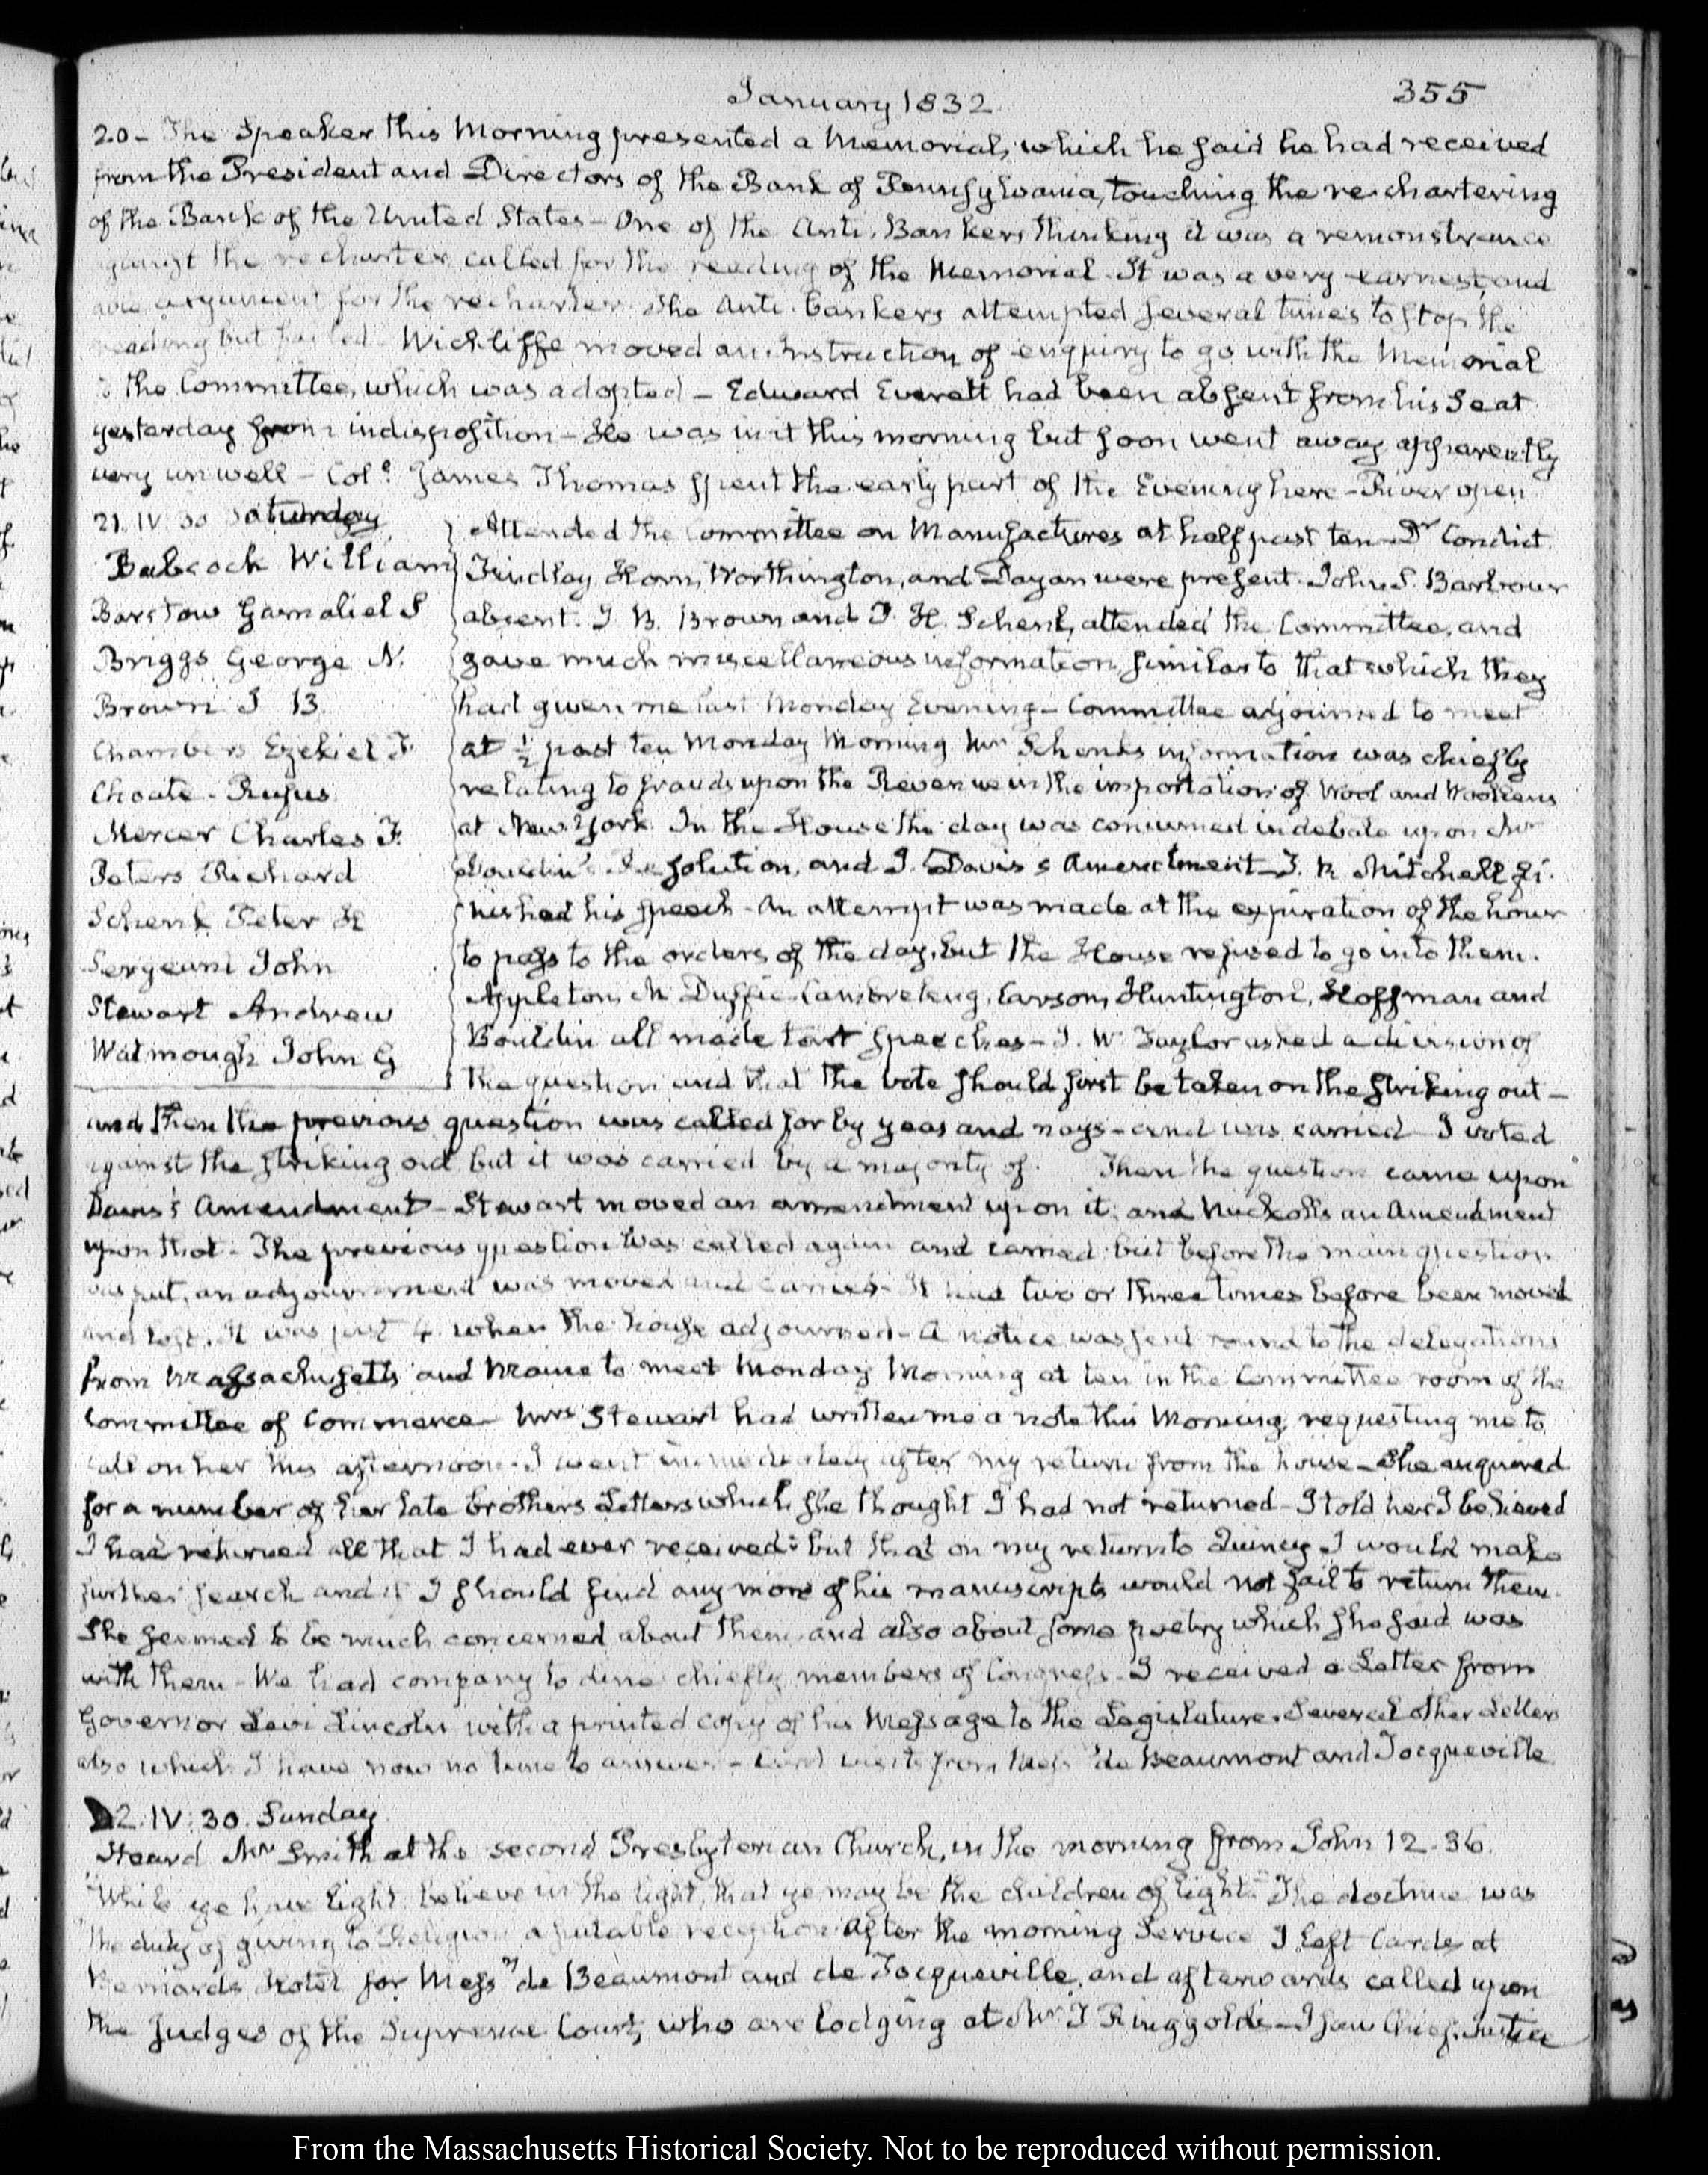 January 1832
355
20- The Speaker this Morning presented a Memorial, which he said he had received
from the President and Directors of the Bank of Pennsylvania, touching the re-chartering
of the Bank of the United States - One of the Anti-Bankers thinking it was a remonstrance
against the recharter, called for the reading of the Memorial. It was a very earnest, and
able argument for the recharter. The Anti-bankers attempted several times to stop the
reading but failed. Wickliffe moved an instruction of enquiry to go with the Memorial
to the Committee, which was adopted - Edward Everett had been absent from his Seat
yesterday from indisposition - He was in it this morning but soon went away apparently
very unwell - Colo. James Thomas spent the early part of the Evening here - River open
21. IV. 30 Saturday
Babcock William
Barstow Gamaliel S
Briggs George N.
Brown J B.
Chambers Ezekiel F.
Choate - Rufus
Mercer Charles F.
Peters Richard
Schenk Peter H
Sergeant John
Stewart Andrew
Watmough John G
Attended the Committee on Manufactures at half past ten - Dr Condict
Findlay, Horn, Worthington, and Dayan were present. John S. Barbour
absent. J. B. Brown and P. H. Schenk, attended the Committee, and
gave much miscellaneous information, similar to that which they
had given me last Monday Evening - Committee adjourned to meet
at ½ past ten Monday Morning. Mr Schenks information was chiefly
relating to frauds upon the Revenue in the importation of Wool and Woollens
at New York. In the House the day was consumed in debate upon Mr
Bouldin's Resolution, and J. Davis's Amendment - T. R. Mitchell fi-
nished his speech - An attempt was made at the expiration of the hour
to pass to the orders of the day, but the House refused to go into them.
Appleton, McDuffie, Cambreleng, Carson, Huntington, Hoffman and
Bouldin all made tart speeches - J. W. Taylor asked a division of
the question and that the vote should first be taken on the striking out -
and then the previous question was called for by yeas and nays - and was carried I voted
against the striking out but it was carried by a majority of. Then the question came upon
Davis's Amendment - Stewart moved an amendment upon it, and Nuckolls an Amendment
upon that - The previous question was called again and carried but before the main question
was put, an adjournment was moved and carried - It had two or three times before been moved
and lost. It was past 4. when the house adjourned - A notice was sent round to the delegations
from Massachusetts and Maine to meet Monday Morning at ten in the Committee room of the
Committee of Commerce - Mrs Stewart had written me a note this Morning, requesting me to
call on her this afternoon - I went immediately after my return from the house - She enquired
for a number of her late brothers Letters which she thought I had not returned - I told her I believed
I had returned all that I had ever received: but that on my return to Quincy I would make
further search and if I should find any more of his manuscripts would not fail to return them.
She seemed to be much concerned about them, and also about some poetry which she said was
with them - We had company to dine chiefly members of Congress - I received a Letter from
Governor Levi Lincoln with a printed copy of his Message to the Legislature. Several other Letters
also which I have now no time to answer - visits from Messrs de Beaumont and Tocqueville
22. IV: 30. Sunday
Heard Mr Smith at the second Presbyterian Church, in the morning from John 12. 36.
"While ye have light, believe in the light, that ye may be the children of light." The doctrine was
the duty of giving to Religion a suitable reception. After the morning Service I left Cards at
Bernards Hotel for Messrs de Beaumont and de Tocqueville, and afterwards called upon
the Judges of the Supreme Court, who are lodging at Mr T Ringgold's - I saw Chief Justice
From the Massachusetts Historical Society. Not to be reproduced without permission.